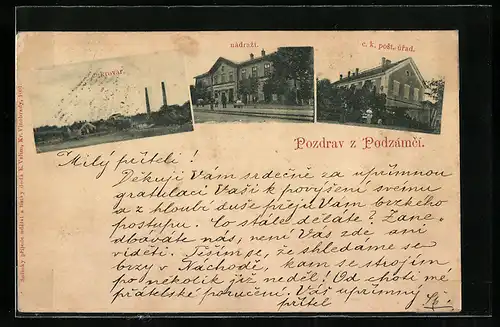 cukrovar.
nádraží.
c. k. pošt. úřad.
Pozdrav z Podzámčí.
Milý příteli!
Děkuji Vám srdečně za upřímnou
gratulaci Vaši k povýšení svému
a z hloubi duše přeju Vám brzkého
postupu. Co stále děláte? Zane-
dbáváte nás, není Vás zde ani
viděti. Těším se, že shledáme se
brzy v Náchodě, kam se strojím
po několik již neděl! Od choti mé
přátelské poručení. Váš upřímný
přítel